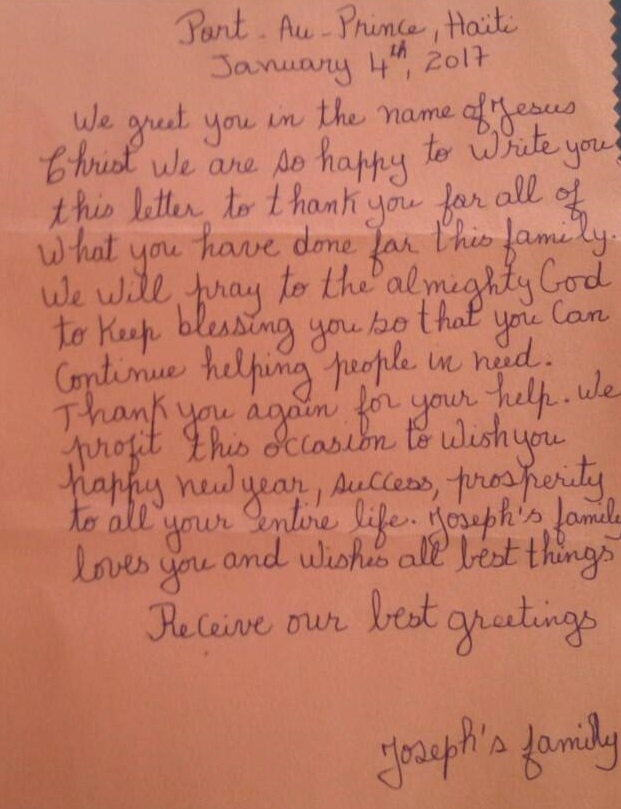 Port-Au-Prince, Haïti
January 4th, 2017
We greet you in the name of Jesus
Christ we are so happy to write you
this letter to thank you for all of
what you have done for this family.
We will pray to the almighty God
to keep blessing you so that you can
continue helping people in need.
Thank you again for your help. We
profit this occasion to wish you
happy new year, success, prosperity
to all your entire life. Joseph's family
loves you and wishes all best things
Receive our best greetings
Joseph's family